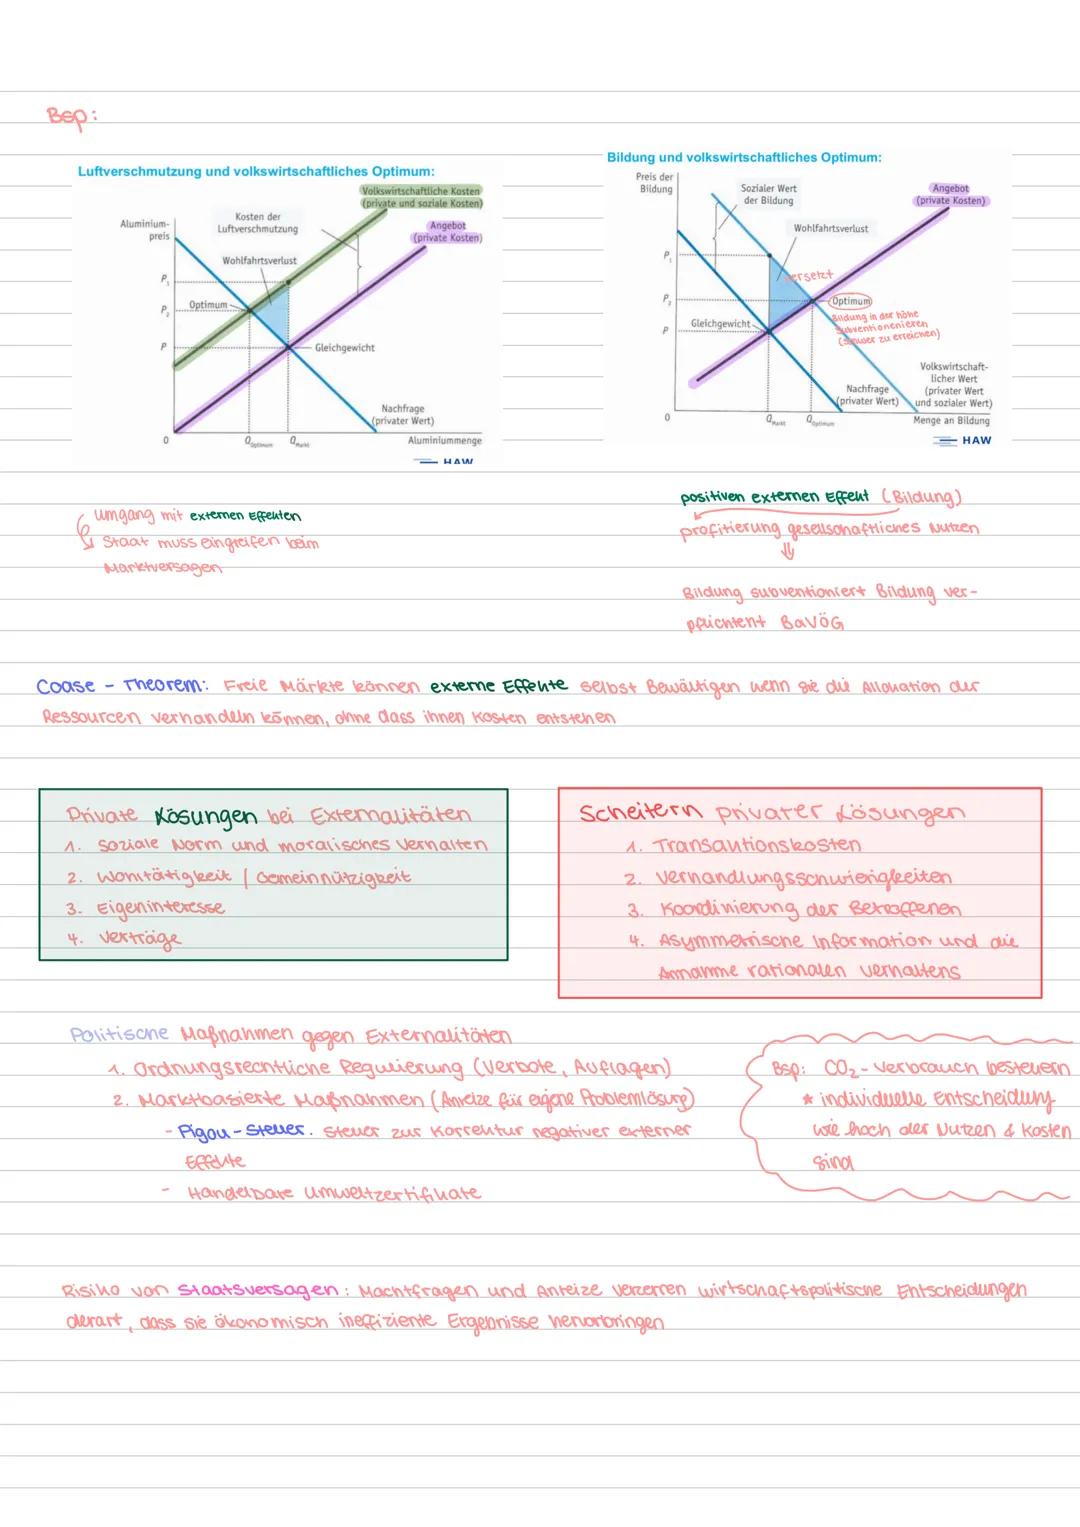 Bsp:
Luftverschmutzung und volkswirtschaftliches Optimum:
Volkswirtschaftliche Kosten
(private und soziale Kosten)
Aluminium-
preis
Kosten der
Luftverschmutzung
Angebot
(private Kosten)
Wohlfahrtsverlust
P1
Optimum
P2
P
Gleichgewicht
Nachfrage
(privater Wert)
0
QOptimum
QMarkt
Aluminiummenge
HAW
Bildung und volkswirtschaftliches Optimum:
Preis der
Bildung
Sozialer Wert
der Bildung
Angebot
(private Kosten)
Wohlfahrtsverlust
P1
versetzt
P2
Optimum
Bildung in der höhe
Subventionenieren
(schwer zu erreichen)
Gleichgewicht
P
Volkswirtschaft-
licher Wert
(privater Wert
und sozialer Wert)
Nachfrage
(privater Wert)
0
QMarkt
QOptimum
Menge an Bildung
HAW
umgang mit externen Effekten
Staat muss eingreifen beim
Marktversagen
positiven externen Effekt (Bildung)
profitierung gesellschaftliches Nutzen
⇓
Bildung subventioniert Bildung ver-
pflichtent BaVöG
Coase - Theorem: Freie Märkte können externe Effekte selbst Bewältigen wenn sie die Allokation der
Ressourcen verhandeln können, ohne dass ihnen Kosten entstehen
Private Lösungen bei Externalitäten
1. Soziale Norm und moralisches Verhalten
2. Wohltätigkeit / Gemeinnützigkeit
3. Eigeninteresse
4. Verträge
Scheitern privater Lösungen
1. Transaktionskosten
2. Verhandlungsschwierigkeiten
3. Koordinierung der Betroffenen
4. Asymmetrische Information und die
Annahme rationalen Verhaltens
Politische Maßnahmen gegen Externalitäten
1. Ordnungsrechtliche Regulierung (Verbote, Auflagen)
2. Marktbasierte Maßnahmen (Anreize für eigene Problemlösung)
- Pigou-Steuer. Steuer zur Korrektur negativer externer
Effekte
- Handelbare Umweltzertifikate
Bsp: CO2-Verbrauch besteuern
* individuelle Entscheidung
wie hoch der Nutzen & Kosten
sind
Risiko von Staatsversagen: Machtfragen und Anreize verzerren wirtschaftspolitische Entscheidungen
derart, dass sie ökonomisch ineffiziente Ergebnisse hervorbringen